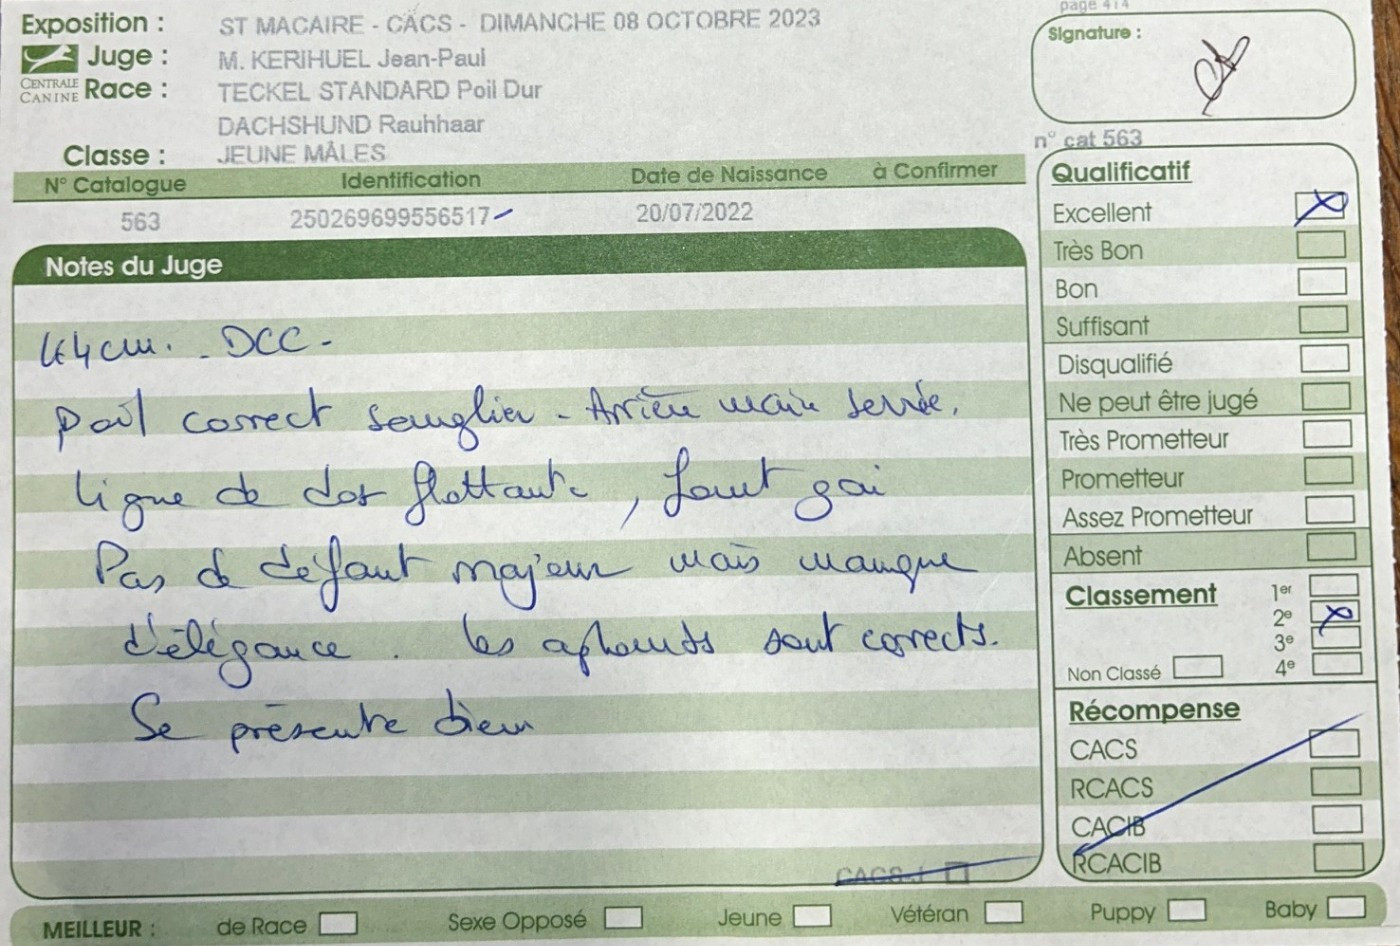 page 4/4
Exposition : ST MACAIRE - CACS - DIMANCHE 08 OCTOBRE 2023
Juge : M. KERIHUEL Jean-Paul
CENTRALE CANINE
Race : TECKEL STANDARD Poil Dur
DACHSHUND Rauhhaar
Classe : JEUNE MÂLES
Signature :
n° cat 563
N° Catalogue Identification Date de Naissance à Confirmer
563 250269699556517 20/07/2022
Notes du Juge
44cm. - DCC -
Poil correct sanglier - Arrière main serrée.
ligne de dos flottante, fouet gai
Pas de défaut majeur mais manque
d'élégance. les aplombs sont corrects.
Se présente bien
CACS-J
Qualificatif
Excellent
Très Bon
Bon
Suffisant
Disqualifié
Ne peut être jugé
Très Prometteur
Prometteur
Assez Prometteur
Absent
Classement
1er
2e
3e
Non Classé 4e
Récompense
CACS
RCACS
CACIB
RCACIB
MEILLEUR : de Race Sexe Opposé Jeune Vétéran Puppy Baby